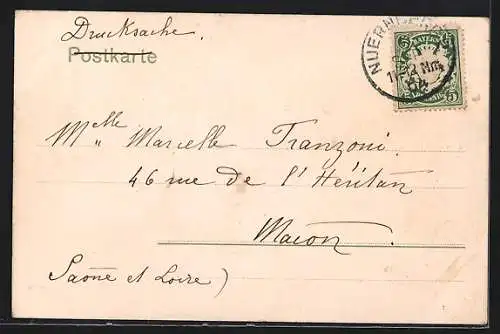 Drucksache.
Postkarte
NUERNBERG
BAYERN
5 5
Mlle Marcelle Tranzoni.
46 rue de l'Héritan
Macon.
Saone et Loire)